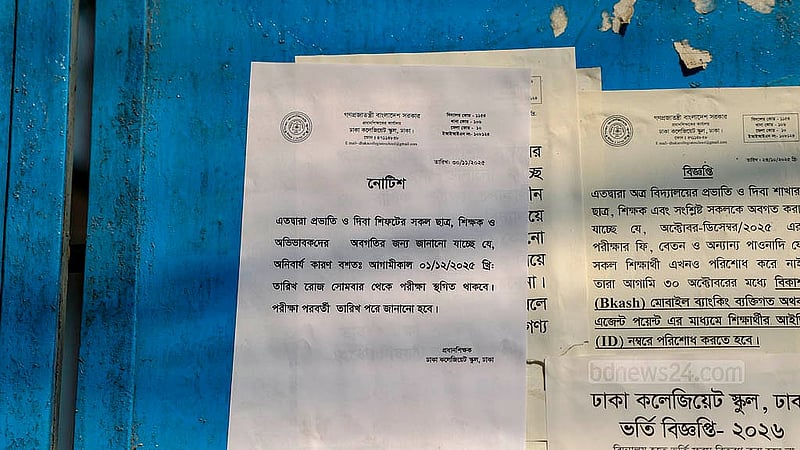 গণপ্রজাতন্ত্রী বাংলাদেশ সরকার
প্রধানশিক্ষকের কার্যালয়
ঢাকা কলেজিয়েট স্কুল, ঢাকা।
তারিখ: ৩০/১১/২০২৫
নোটিশ
এতদ্বারা প্রভাতি ও দিবা শিফটের সকল ছাত্র, শিক্ষক ও
অভিভাবকদের অবগতির জন্য জানানো যাচ্ছে যে,
অনিবার্য কারণ বশতঃ আগামীকাল ০১/১২/২০২৫ খ্রি:
তারিখ রোজ সোমবার থেকে পরীক্ষা স্থগিত থাকবে।
পরীক্ষা পরবর্তী তারিখ পরে জানানো হবে।
প্রধানশিক্ষক
ঢাকা কলেজিয়েট স্কুল, ঢাকা
গণপ্রজাতন্ত্রী বাংলাদেশ সরকার
প্রধানশিক্ষকের কার্যালয়
ঢাকা কলেজিয়েট স্কুল, ঢাকা।
বিজ্ঞপ্তি
এতদ্বারা অত্র বিদ্যালয়ের প্রভাতি ও দিবা শাখার
ছাত্র, শিক্ষক এবং সংশ্লিষ্ট সকলকে অবগত করা
যাচ্ছে যে, অক্টোবর-ডিসেম্বর/২০২৫ এর
পরীক্ষার ফি, বেতন ও অন্যান্য পাওনাদি
সকল শিক্ষার্থী এখনও পরিশোধ করে নাই
তারা আগামি ৩০ অক্টোবরের মধ্যে বিকাশ
(Bkash) মোবাইল ব্যাংকিং ব্যক্তিগত অথবা
এজেন্ট পয়েন্ট এর মাধ্যমে শিক্ষার্থীর আইডি
(ID) নম্বরে পরিশোধ করতে হবে।
bdnews24.com
ঢাকা কলেজিয়েট স্কুল, ঢাকা
ভর্তি বিজ্ঞপ্তি- ২০২৬